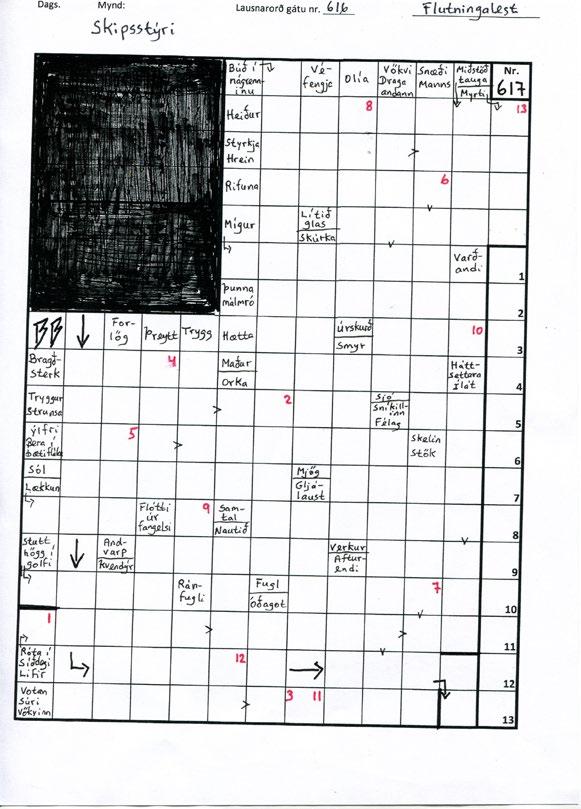 Dags. Mynd: Lausnarorð gátu nr. 616 Flutningalest
Skipsstýri
Búð í
nágrenn-
inu
Vé-
fengje
Olía
Vökvi
Draga
andann
Snæði
Manns
Miðstöð
tauga
Myrti
Nr.
617
Heiður
8
13
Styrkja
Hrein
>
Rifuna
6
Mígur
Lítið
glas
Skúrka
Varð-
andi
1
Þunna
málmró
2
For-
lög
Þreytt
Trygg
Hætta
Úrskurð
Smyr
10
3
Bragð-
sterk
4
Maður
Orka
Hátt-
settara
Ílát
4
Tryggur
Strunsa
>
2
Sjó
Sníkill-
inn
Félag
5
Ýlfri
Bera í
bætifláka
5
>
Skelin
Stök
6
Sól
Lækkun
Mjög
Gljá-
laust
7
Flótti
úr
fangelsi
9
Sam-
tal
Nautið
8
Stutt
högg í
golfi
And-
varp
Kvendýr
Verkur
Aftur-
endi
9
Rán-
fugli
Fugl
Óðagot
7
10
1
>
>
11
Róta í
Síðdegi
Lifir
12
12
Votan
Súri
Vökvinn
>
3
11
13